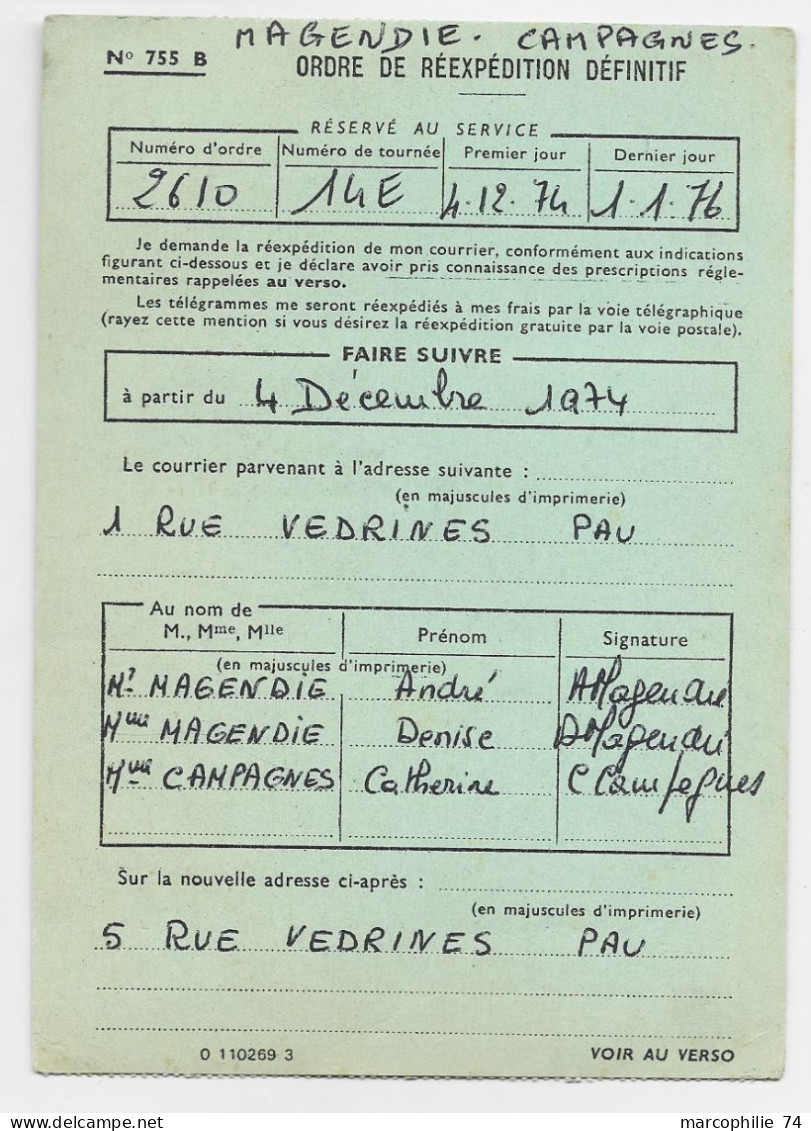 MAGENDIE. CAMPAGNES.
Nº 755 B
ORDRE DE RÉEXPÉDITION DÉFINITIF
RÉSERVÉ AU SERVICE
Numéro d'ordre Numéro de tournée Premier jour Dernier jour
2610 14E 4.12.74 1.1.76
Je demande la réexpédition de mon courrier, conformément aux indications
figurant ci-dessous et je déclare avoir pris connaissance des prescriptions régle-
mentaires rappelées au verso.
Les télégrammes me seront réexpédiés à mes frais par la voie télégraphique
(rayez cette mention si vous désirez la réexpédition gratuite par la voie postale).
FAIRE SUIVRE
à partir du 4 Décembre 1974
Le courrier parvenant à l'adresse suivante :
(en majuscules d'imprimerie)
1 RUE VEDRINES PAU
Au nom de
M., Mme, Mlle Prénom Signature
(en majuscules d'imprimerie)
Mr MAGENDIE André AMagendie
Mme MAGENDIE Denise DMagendie
Mme CAMPAGNES Catherine C Campagnes
Sur la nouvelle adresse ci-après :
(en majuscules d'imprimerie)
5 RUE VEDRINES PAU
O 110269 3 VOIR AU VERSO
marcophilie 74